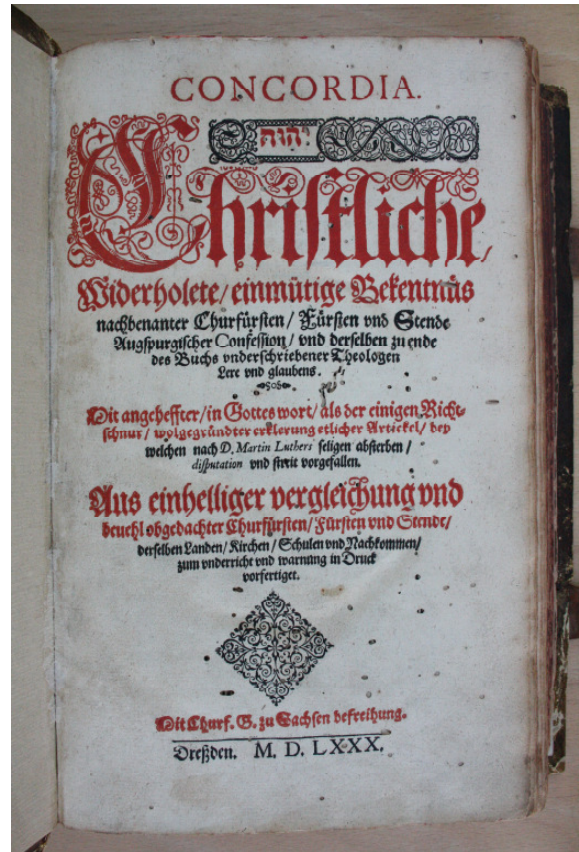 CONCORDIA.
יהוה
Christliche,
Widerholete/ einmütige Bekentnüs
nachbenanter Churfürsten/ Fürsten vnd Stende
Augspurgischer Confession/ vnd derselben zu ende
des Buchs vnderschriebener Theologen
Lere vnd glaubens.
Mit angeheffter/ in Gottes wort/ als der einigen Richt-
schnur/ wolgegründter erklerung etlicher Artickel/ bey
welchen nach D. Martin Luthers seligen absterben/
disputation vnd streit vorgefallen.
Aus einhelliger vergleichung vnd
beuehl obgedachter Churfürsten/ Fürsten vnd Stende/
derselben Landen/ Kirchen/ Schulen vnd Nachkommen/
zum vnderricht vnd warnung in Druck
vorfertiget.
Mit Churf. G. zu Sachsen befreihung.
Dreßden. M. D. LXXX.